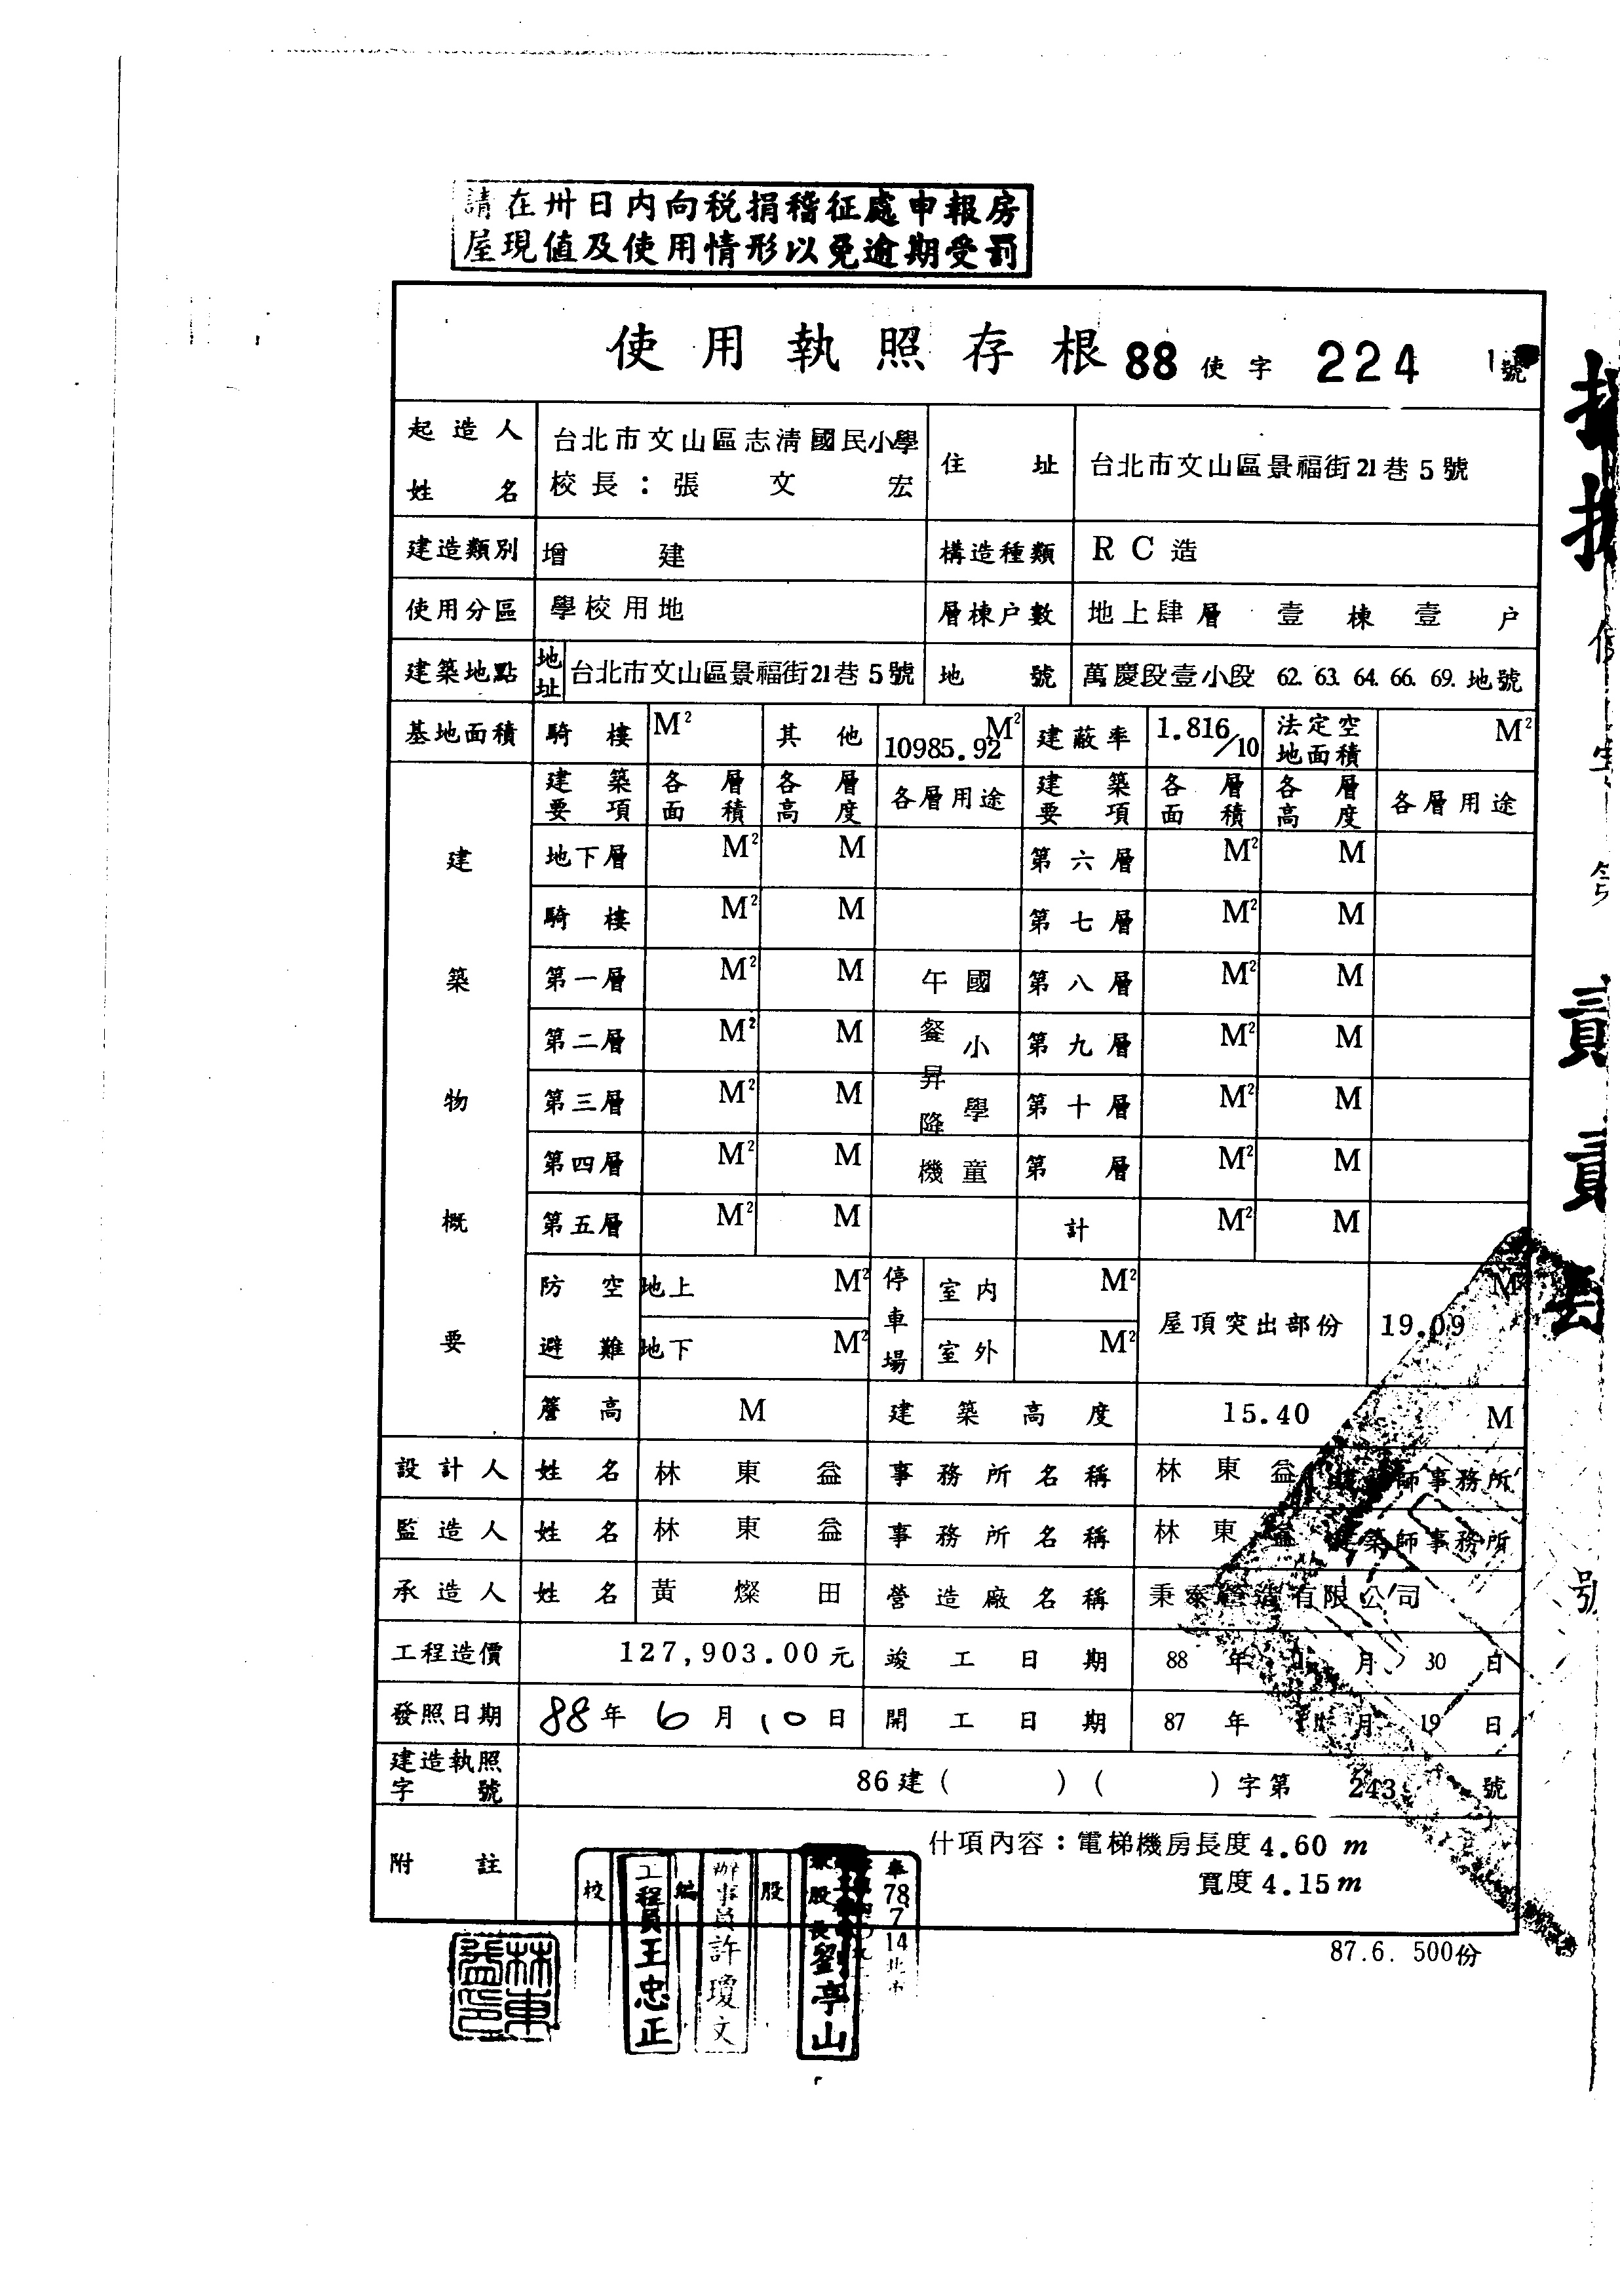 請在卅日內向稅捐稽征處申報房
屋現值及使用情形以免逾期受罰
使用執照存根 88 使字 224 號
起造人姓名 台北市文山區志清國民小學
校長：張文宏
住址 台北市文山區景福街21巷5號
建造類別 增建 構造種類 RC造
使用分區 學校用地 層棟户數 地上肆層 壹棟 壹户
建築地點 地址 台北市文山區景福街21巷5號 地號 萬慶段壹小段 62. 63. 64. 66. 69. 地號
基地面積 騎樓 M² 其他 10985.92 M² 建蔽率 1.816/10 法定空地面積 M²
建築物概要
建築要項 各層面積 各層高度 各層用途 建築要項 各層面積 各層高度 各層用途
地下層 M² M 第六層 M² M
騎樓 M² M 第七層 M² M
第一層 M² M 第八層 M² M
第二層 M² M 第九層 M² M
第三層 M² M 第十層 M² M
第四層 M² M 第 層 M² M
第五層 M² M 計 M² M
國小學童
午餐昇降機
防空避難 地上 M² 停車場 室內 M² 屋頂突出部份 19.09 M²
地下 M² 室外 M²
簷高 M 建築高度 15.40 M
設計人 姓名 林東益 事務所名稱 林東益建築師事務所
監造人 姓名 林東益 事務所名稱 林東益建築師事務所
承造人 姓名 黃燦田 營造廠名稱 秉泰營造有限公司
工程造價 127,903.00元 竣工日期 88年 月30日
發照日期 88年6月10日 開工日期 87年 月19日
建造執照字號 86建( )( )字第 243 號
附註 什項內容：電梯機房長度4.60 m
寬度4.15 m
校 工程員王忠正
辦事員許瓊文
股 股長劉亭山
78 7 14
87.6. 500份
林東益印